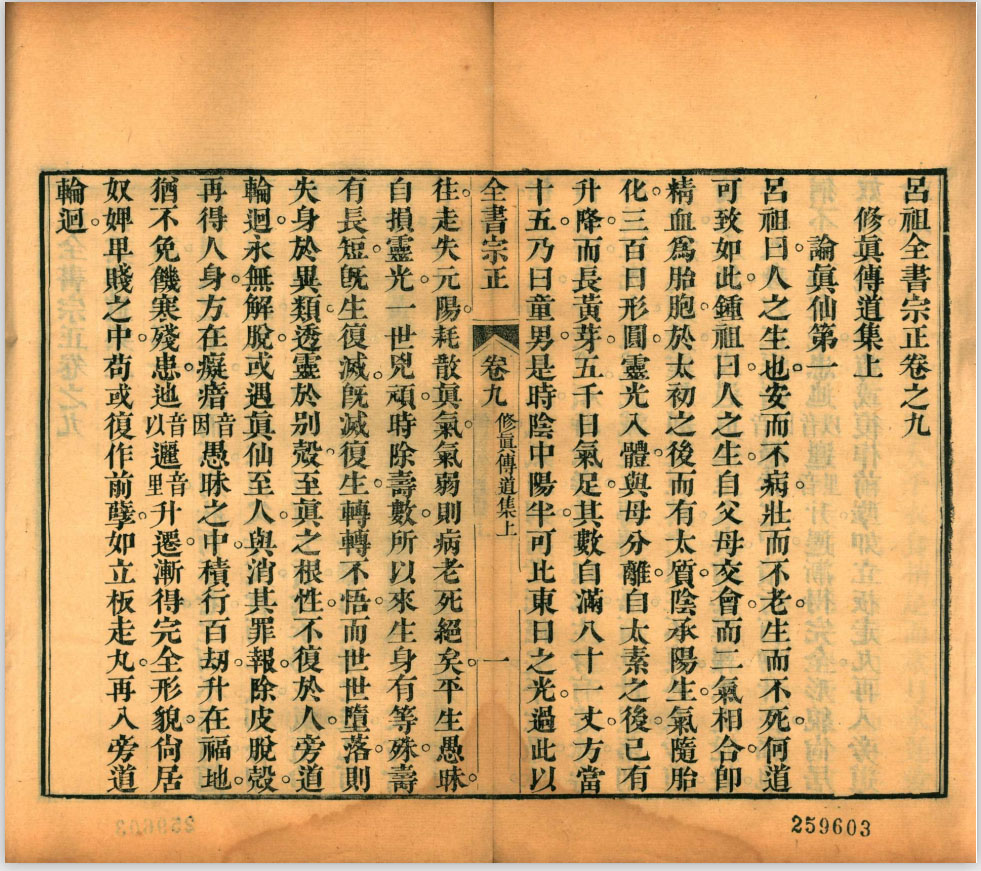 呂祖全書宗正卷之九
修眞傳道集上
論眞仙第一
呂祖曰人之生也安而不病壯而不老生而不死何道
可致如此鍾祖曰人之生自父母交會而二氣相合卽
精血爲胎胞於太初之後而有太質陰承陽生氣隨胎
化三百日形圓靈光入體與母分離自太素之後已有
升降而長黃芽五千日氣足其數自滿八十一丈方當
十五乃曰童男是時陰中陽半可比東日之光過此以
全書宗正 卷九 修眞傳道集上 一
往走失元陽耗散眞氣氣弱則病老死絕矣平生愚昧
自損靈光一世兇頑時除壽數所以來生身有等殊壽
有長短旣生復滅旣滅復生轉轉不悟而世世墮落則
失身於異類透靈於别殼至眞之根性不復於人旁道
輪迴永無解脫或遇眞仙至人與消其罪報除皮脫殼
再得人身方在癡瘖音因愚昧之中積行百刼升在福地
猶不免饑寒殘患迤音以邐音里升遷漸得完全形貌尙居
奴婢早賤之中苟或復作前孽如立板走丸再入旁道
輪迴
259603